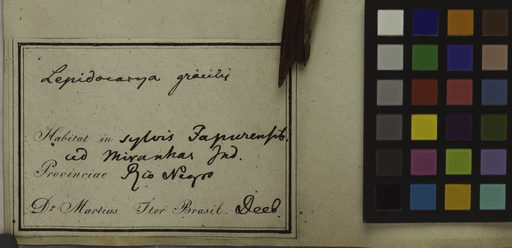 Lepidocarya gracilis
Habitat in sylvis Japurensib.
ad Miranhas Ind.
Provinciae Rio Negro
Dr Martius Iter Brasil. Decb.